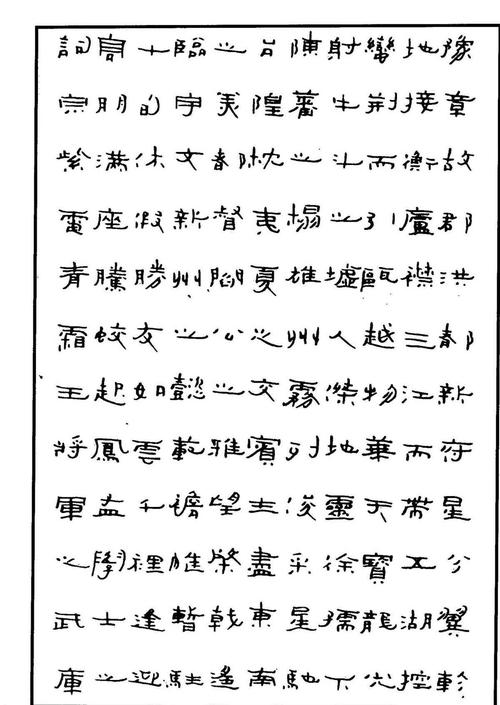 豫章故郡洪都新府星分翼軫
地接衡廬襟三江而帶五湖控
蠻荆而引甌越物華天寶龍光
射牛斗之墟人傑地靈徐孺下
陳蕃之榻雄州霧列俊采星馳
台隍枕夷夏之交賓主盡東南
之美都督閻公之雅望棨戟遙
臨宇文新州之懿範襜帷暫駐
十旬休假勝友如雲千裡逢迎
高朋滿座騰蛟起鳳孟學士之
詞宗紫電青霜王將軍之武庫